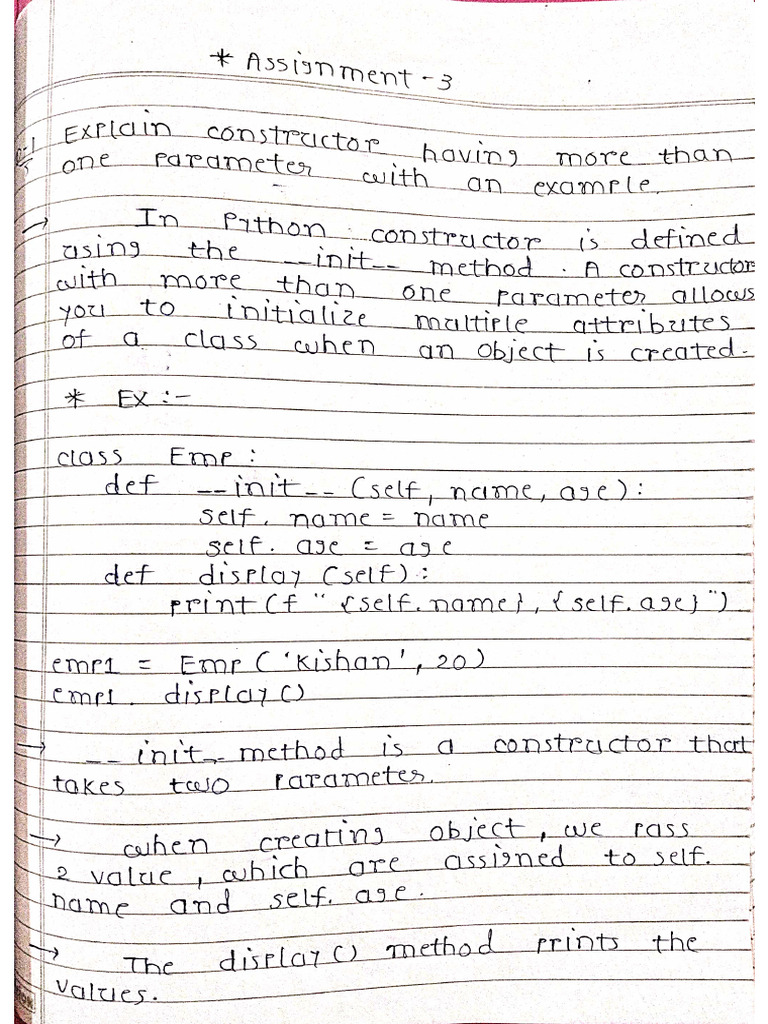 * Assignment - 3
Q-1 Explain constructor having more than
one parameter with an example.
→ In Python constructor is defined
using the __init__ method. A constructor
with more than one parameter allows
you to initialize multiple attributes
of a class when an object is created.
* Ex :-
class Emp :
def __init__ (self, name, age):
self. name = name
self. age = age
def display (self):
print (f " {self.name}, {self.age} ")
emp1 = Emp ('Kishan', 20)
emp1. display ()
→ __init__ method is a constructor that
takes two parameter.
→ when creating object, we pass
2 value, which are assigned to self.
name and self. age.
→ The display () method prints the
values.